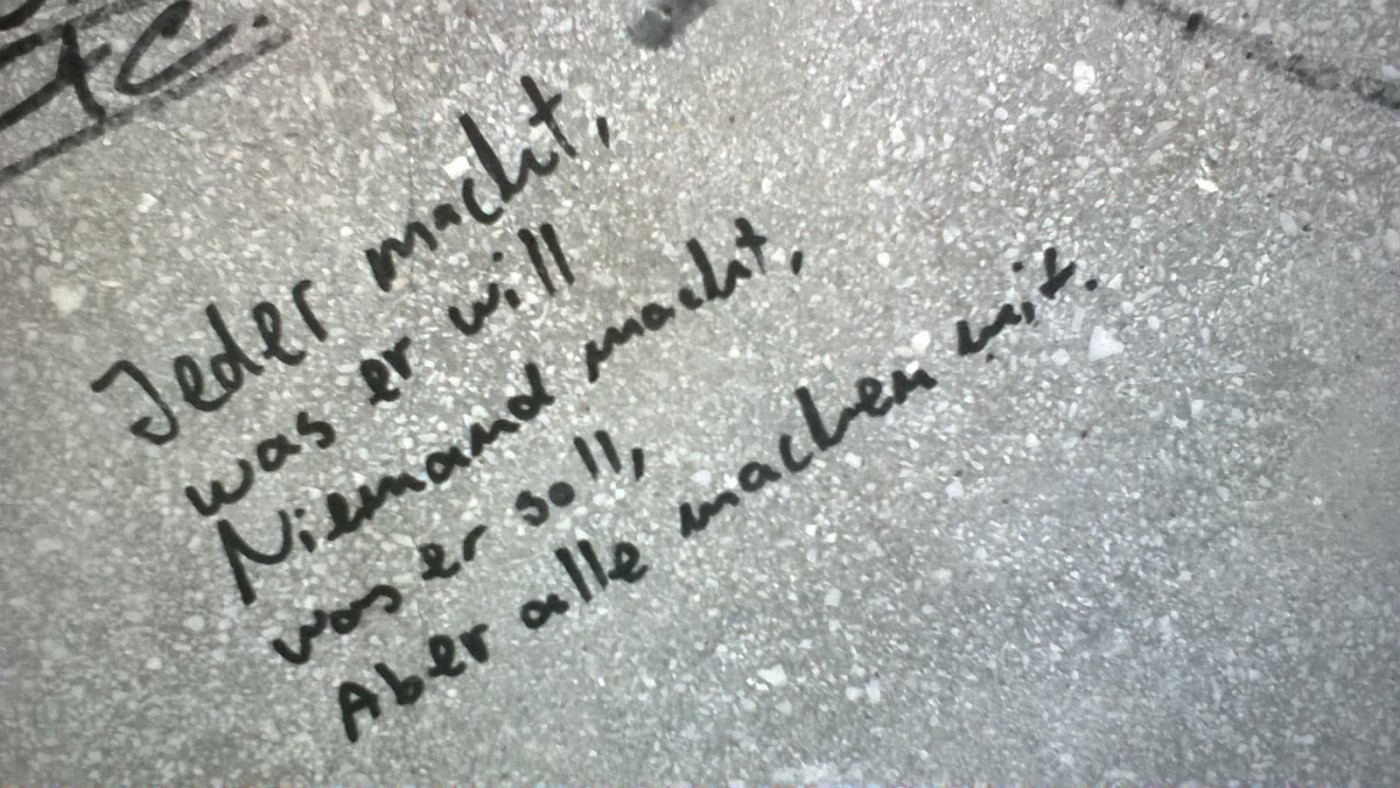 Jeder macht,
was er will
Niemand macht,
was er soll,
Aber alle machen mit.